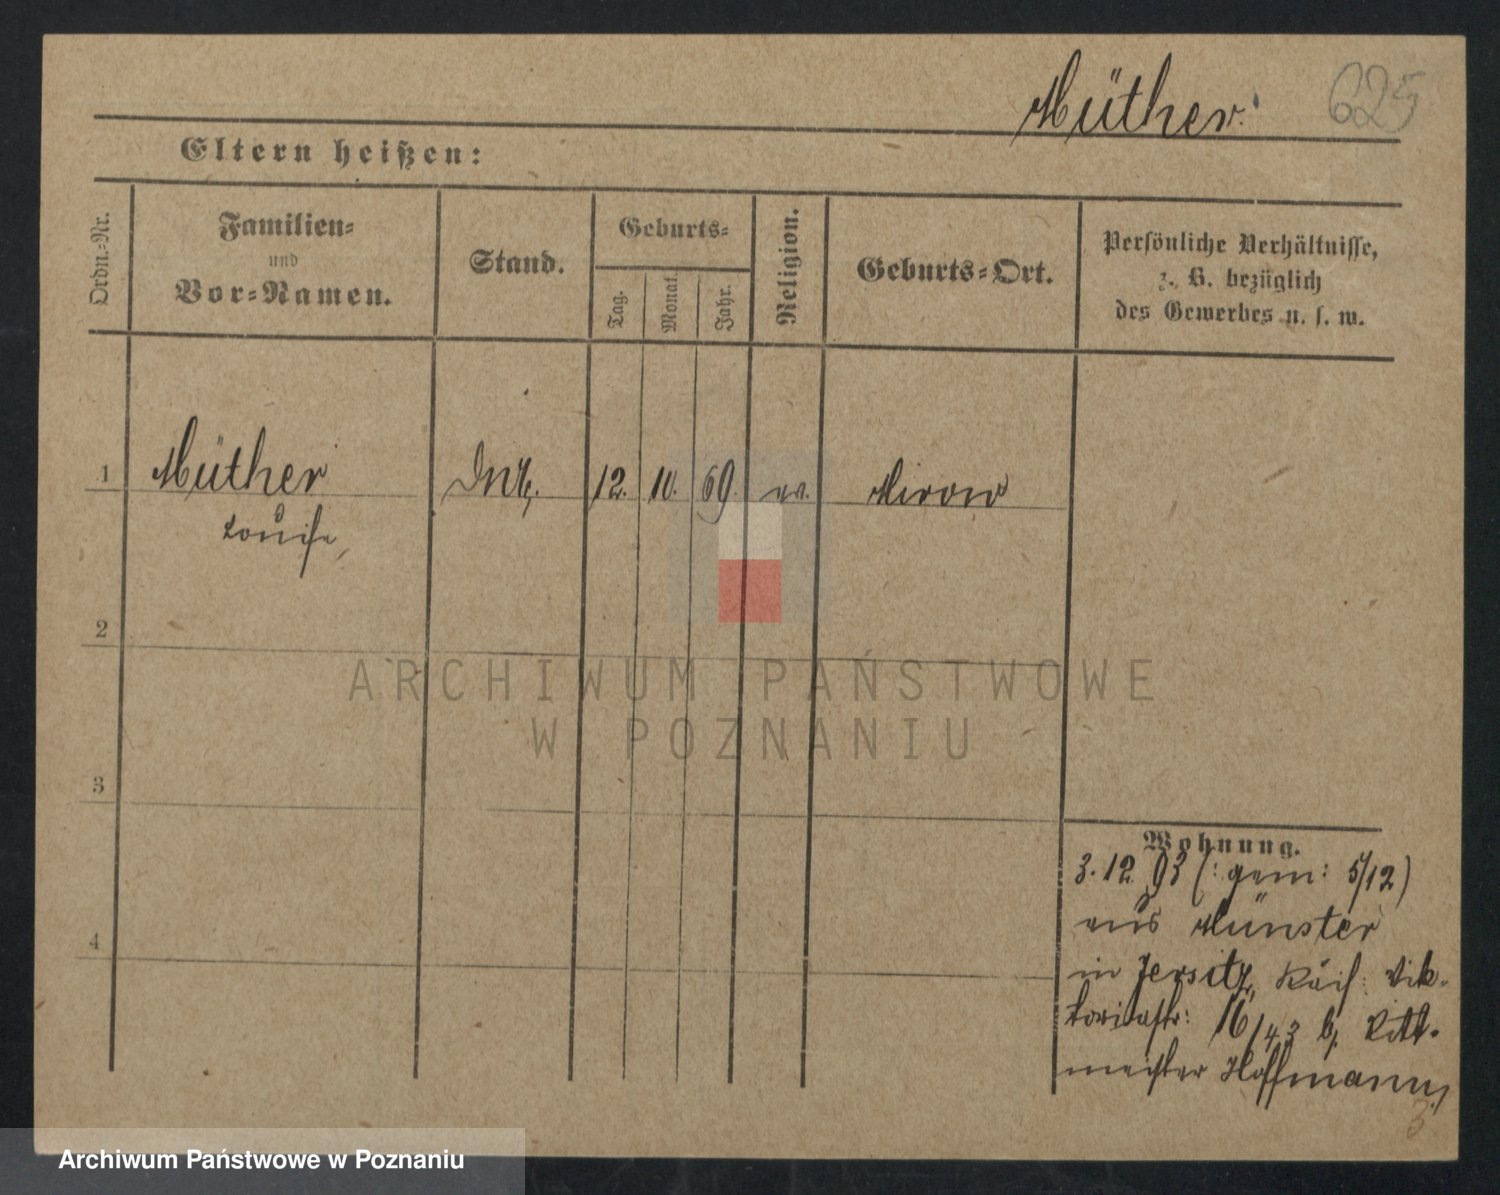 Müther.
625
Eltern heißen:
Ordn.=Nr.
Familien=
und
Vor=Namen.
Stand.
Geburts=
Tag.
Monat.
Jahr.
Religion.
Geburts=Ort.
Persönliche Verhältnisse,
z. B. bezüglich
des Gewerbes u. s. w.
1
Müther
Louise,
12.
10.
69.
ev.
Mirow
2
ARCHIWUM PAŃSTWOWE
W POZNANIU
3
4
Wohnung.
3.12.93 (: gem: 5/12)
aus Münster
in Jersitz, Kais: Vik-
toriastr: 16/43 b, Ritt-
meister Hoffmann,
3
Archiwum Państwowe w Poznaniu